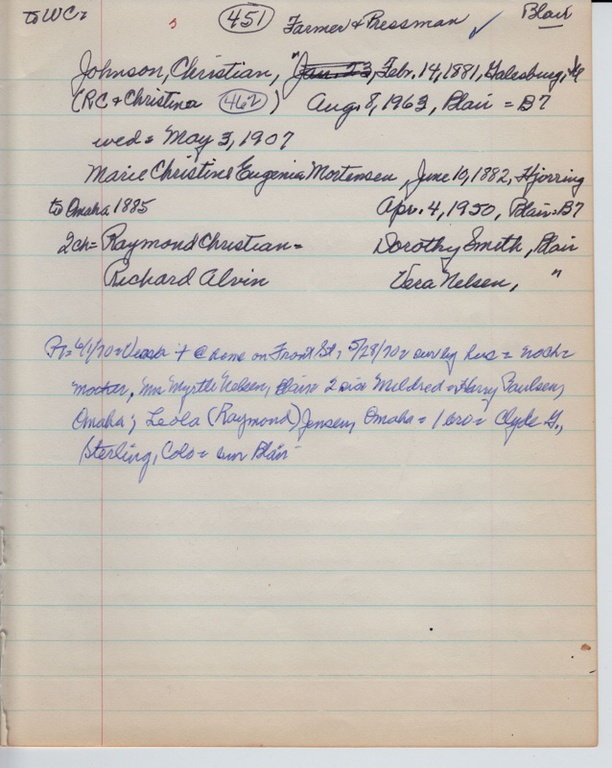 to WC= 451 Farmer & Pressman ✓ Blair
Johnson, Christian, Jan. 23, Febr. 14, 1881, Galesburg,
(RC & Christina 462) Aug. 8, 1963, Blair = B7
wed = May 3, 1907
Marie Christine Eugenia Mortensen, June 10, 1882, Hjorring
to Omaha 1885 Apr. 4, 1950, Blair = B7
2ch = Raymond Christian = Dorothy Smith, Blair
Richard Alvin Vera Nelsen, "
PT = 6/1/70 = Vera + @ home on Front St, 5/28/70 = surv by hus = noch =
mother, Mrs Myrtle Nelsen, Blair 2 sis Mildred = Harry Paulsen,
Omaha; Leola (Raymond) Jensen, Omaha = 1 bro = Clyde G.,
Sterling, Colo = bur Blair